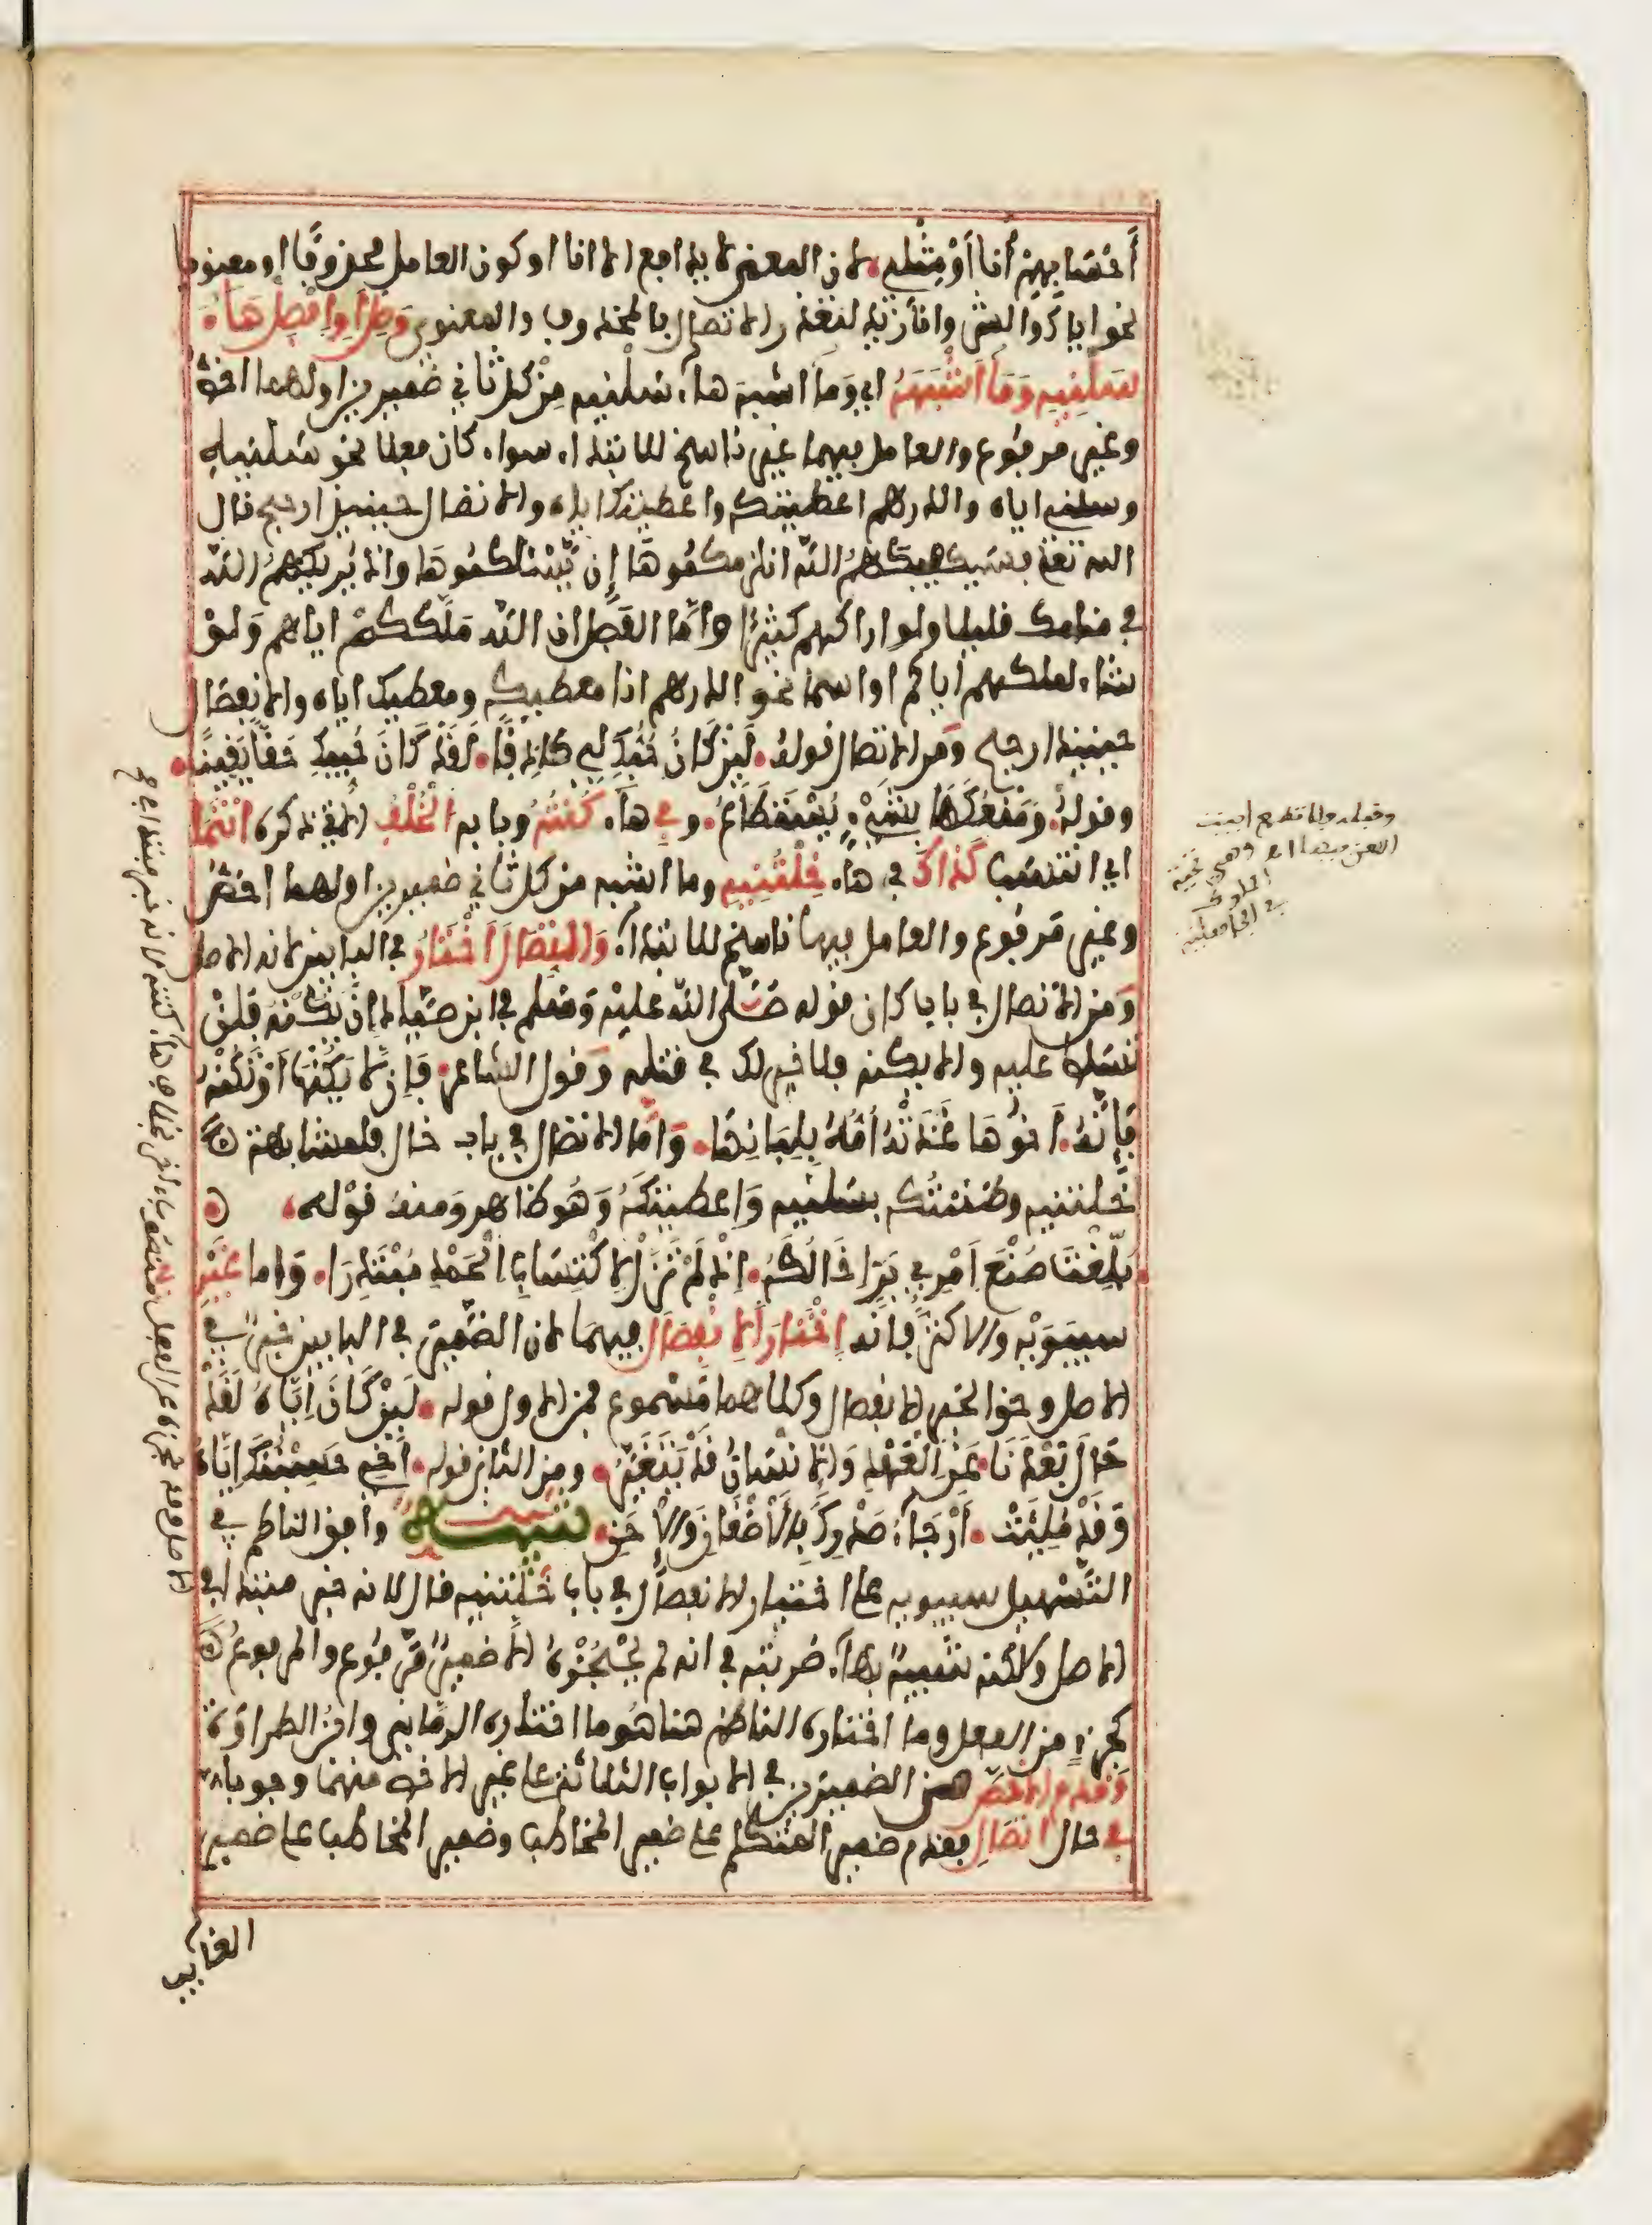 أحسابهم أنا أو مثلي لان المعنى لا يدافع الا انا او كون العامل محذوفا او معنويا
نحو اياك والشر وانا زيد لتعذر الاتصال بالمحذوف والمعنوي وصل او افصل هاء
سلنيه وما أشبهه اي وما اشبه هاء سلنيه من كل ثاني ضميرين اولهما اخص
وغير مرفوع والعامل فيهما غير ناسخ للابتداء سواء كان فعلا نحو سلنيه
وسلني اياه والدرهم اعطيتكه واعطيتك اياه والاتصال حينئذ ارجح قال
الله تعلى فسيكفيكهم الله انلزمكموها إن يسئلكموها واذ يريكهم الله
في منامك قليلا ولو اراكهم كثيرا واما الفصل ان الله ملككم اياهم ولو
شاء لملكهم اياكم او اسما نحو الدرهم انا معطيكه ومعطيك اياه والانفصال
حينئذ ارجح ومن الاتصال قوله لئن كان حبك لي كاذبا لقد كان حبيك حقا يقينا
وقوله ومنعكها بشيء يستطاع وفي هاء كنته وبابه الخلف الاتي ذكره انتمى
اي انتسب كذاك في هاء خلتنيه وما اشبه من كل ثاني ضميرين اولهما اخص
وغير مرفوع والعامل فيها ناسخ للابتداء واتصالا اختار في البابين لانه الاصل
ومن الاتصال في باب كان قوله صلى الله عليه وسلم في ابن صياد إن يكنه فلن
تسلط عليه والا يكنه فلا خير لك في قتله وقول الشاعر فإن لا يكنها أو تكنه
فإنه أخوها غذته أمه بلبانها واما الاتصال في باب خال فلمشابهة
خلتنيه وظننتكه بسلنيه واعطيتكه وهو ظاهر ومنه قوله
بلغت صنع امرئ بر إخالكه إذ لم تزل لاكتساب الحمد مبتدرا واما غير
سيبويه والاكثر فانه اختار الانفصال فيهما لان الضمير في البابين خبر في
الاصل وحق الخبر الانفصال وكلاهما مسموع فمن الاول قوله لئن كان إياه لقد
حال بعدنا عن العهد والانسان قد يتغير ومن الثاني قوله أخي حسبتك إياه
وقد ملئت أرجاء صدرك بالأضغان والإحن تنبيه وافق الناظم في
التسهيل سيبويه على اختيار الانفصال في باب خلتنيه قال لانه خبر مبتدا في
الاصل ولاكنه شبيه بهاء ضربته في انه لم يحجزه الا ضمير مرفوع والمرفوع
كجزء من الفعل وما اختاره الناظم هنا هو ما اختاره الرماني وابن الطراوة
وقدم الاخص من الضميرين في الابواب الثلاثة على غير الاخص منهما وجوبا
في حال اتصال فقدم ضمير المتكلم على ضمير المخاطب وضمير المخاطب على ضمير
الغايب